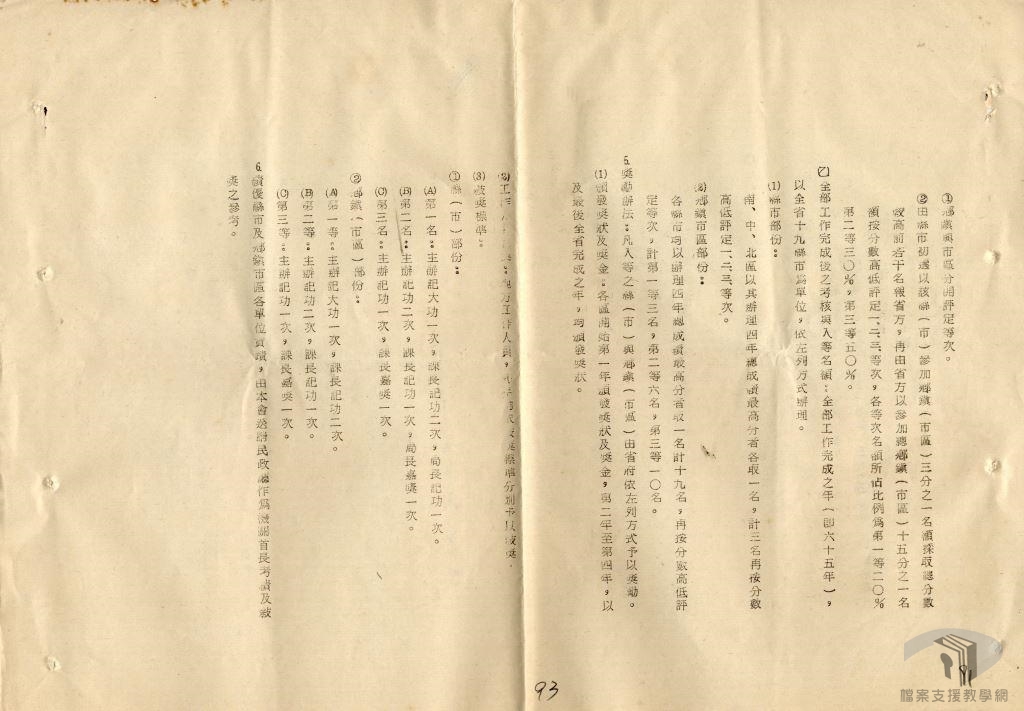 ①鄉鎮與市區分開評定等次。
②由縣市初選以該縣(市)參加鄉鎮(市區)三分之一名額採取總分數
較高前若干名報省方,再由省方以參加總鄉鎮(市區)十五分之一名
額按分數高低評定一、二、三、等次,各等次名額所佔比例為第一等二〇%
第二等三〇%,第三等五〇%。
乙全部工作完成後之考核與入等名額:全部工作完成之年(即六十五年),
以全省十九縣市為單位,依左列方式辦理。
(1)縣市部份:
南、中、北區以其辦理四年總成績最高分者各取一名,計三名再按分數
高低評定一、二、三、等次。
(2)鄉鎮市區部份:
各縣市均以辦理四年總成績最高分者取一名計十九名,再按分數高低評
定等次,計第一等三名,第二等六名,第三等一〇名。
5.獎勵辦法:凡入等之縣(市)與鄉鎮(市區)由省府依左列方式予以獎勵。
(1)頒發獎狀及獎金:各區開始第一年頒發獎狀及獎金,第二年至第四年,以
及最後全省完成之年,均頒發獎狀。
(3)敍獎標準:
①縣(市)部份:
(A)第一名:主辦記大功一次,課長記功二次,局長記功一次。
(B)第二名:主辦記功二次,課長記功一次,局長嘉獎一次。
(C)第三名:主辦記功一次,課長嘉獎一次。
②鄉鎮(市區)部份:
(A)第一等:主辦記大功一次,課長記功二次。
(B)第二等:主辦記功二次,課長記功一次。
(C)第三等:主辦記功一次,課長嘉獎一次。
6.績優縣市及鄉鎮市區各單位資績,由本會送請民政廳作為機關首長考績及敍
獎之參考。
93
91
檔案支援教學網